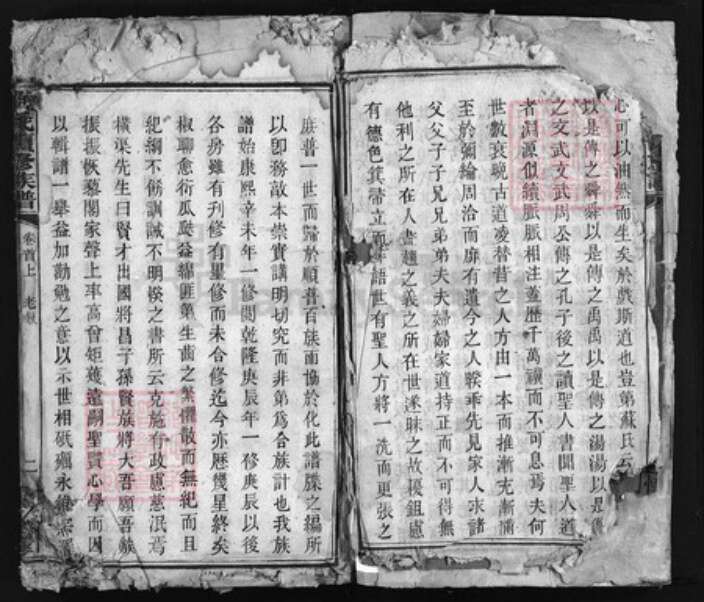 心可以油然而生矣於戲斯道也豈第蘇氏云
以是傳之舜舜以是傳之禹禹以是傳之湯湯以是傳
之文武文武周公傳之孔子後之讀聖人書聞聖人道
者淵源似續脈脈相注蓋歷千萬禩而不可息焉夫何
世數衰晚古道凌替昔之人方由一本而推漸充漸滿
至於彌綸周洽而靡有遺今之人睽乖先見家人求諸
父父子子兄兄弟弟夫夫婦婦家道持正而不可得無
他利之所在人盡趨之義之所在世遂昧之故耰鉏慮
有德色箕帚立而誶語世有聖人方將一洗而更張之
庶普一世而歸於順普百族而協於化此譜牒之編所
以即務敵本崇實講明切究而非第為合族計也我族
譜始康熙辛未年一修閱乾隆庚辰年一修庚辰以後
各房雖有刊修有畢修而未合修迄今亦歷幾星終矣
椒聊愈衍瓜瓞益緜匪第生齒之繁懼散而無紀而且
紀綱不飭訓誡不明揆之書所云克施有政慮慈泯焉
橫渠先生曰賢才出國將昌子孫賢族將大吾願吾族
振振恢藜閣家聲上率高曾矩矱遠嗣聖賢心學而因
以輯譜一舉益加勸勉之意以示世相砥礪永
氏重修族譜
卷首上
老敘
二